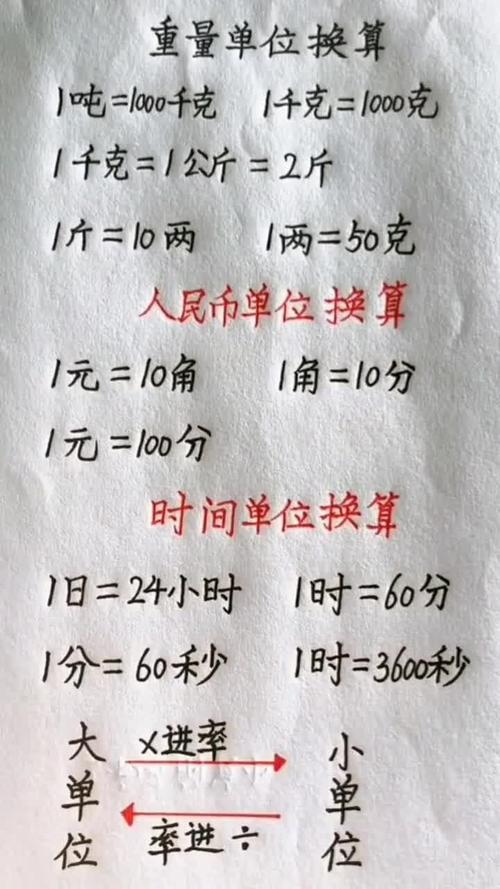 重量单位换算
1吨=1000千克 1千克=1000克
1千克=1公斤=2斤
1斤=10两 1两=50克
人民币单位换算
1元=10角 1角=10分
1元=100分
时间单位换算
1日=24小时 1时=60分
1分=60秒 1时=3600秒
大单位
×进率
率进÷
小单位